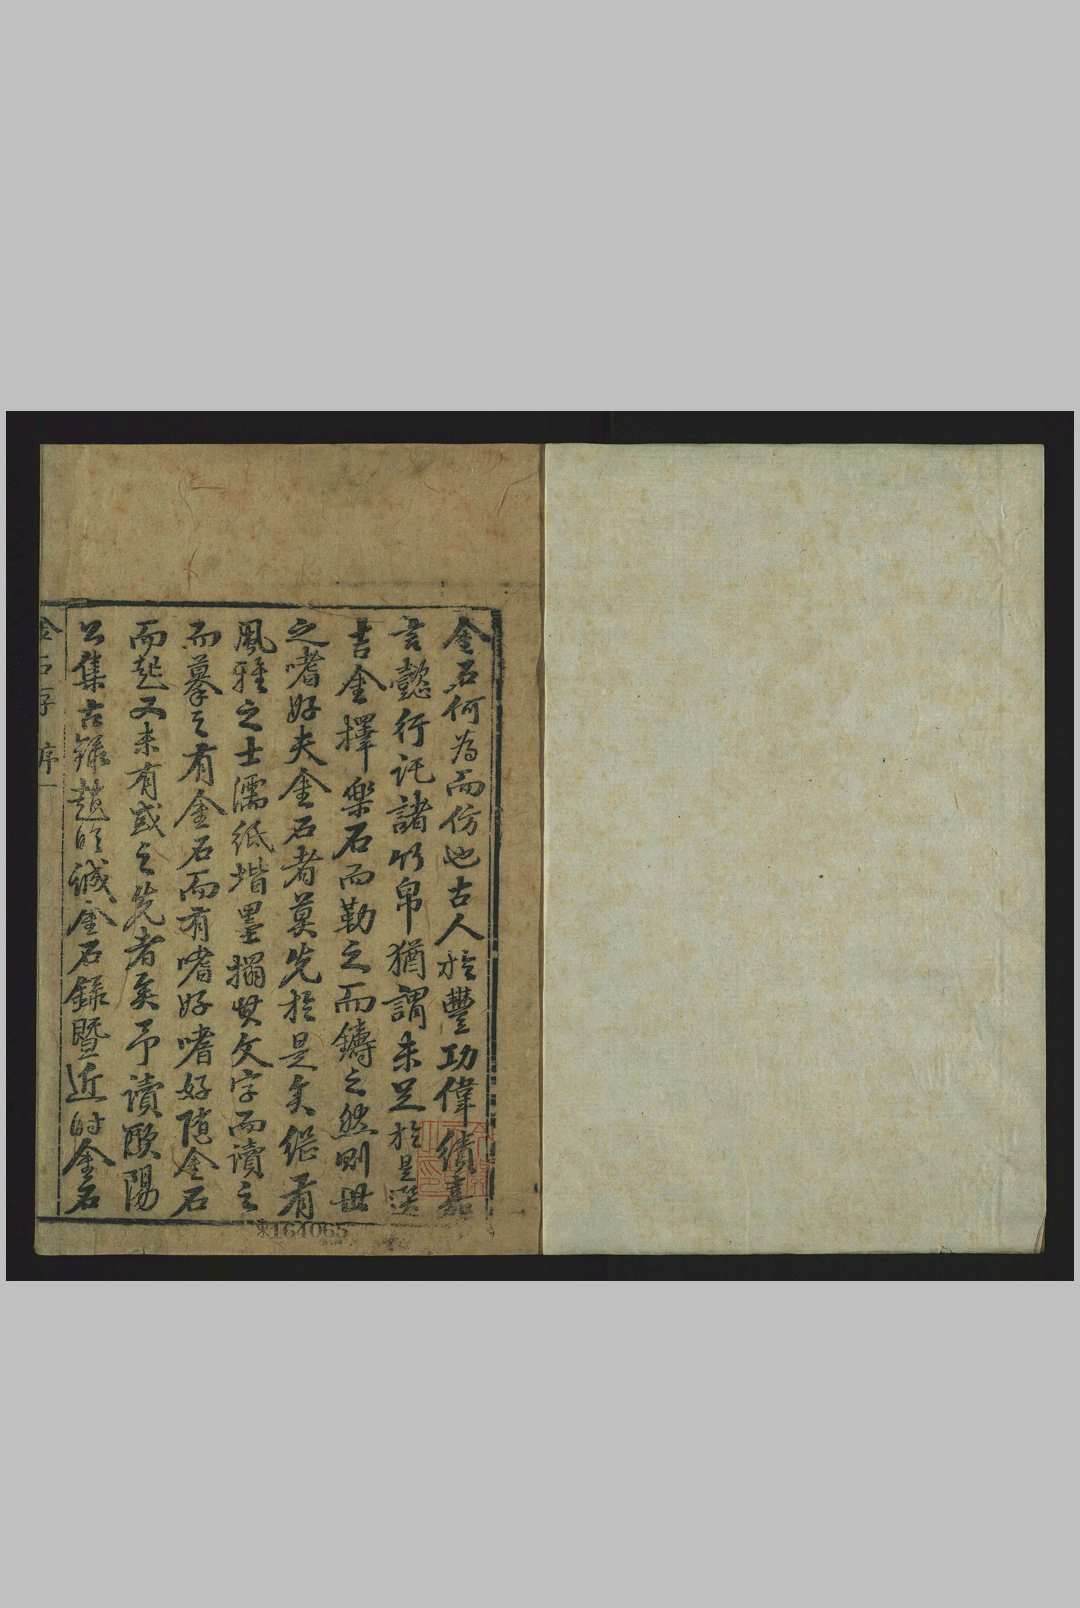 金石何為而仿也古人於豐功偉績嘉
言懿行託諸竹帛猶謂未足於是選
吉金擇樂石而勒之而鑄之然則世
之嗜好夫金石者莫先於是矣繼有
風雅之士濡紙揩墨搨其文字而讀之
而摹之有金石而有嗜好嗜好隨金石
而起又未有或之先者矣予讀歐陽
公集古錄趙明誠金石錄暨近時金石
金石存 序 一
東164065